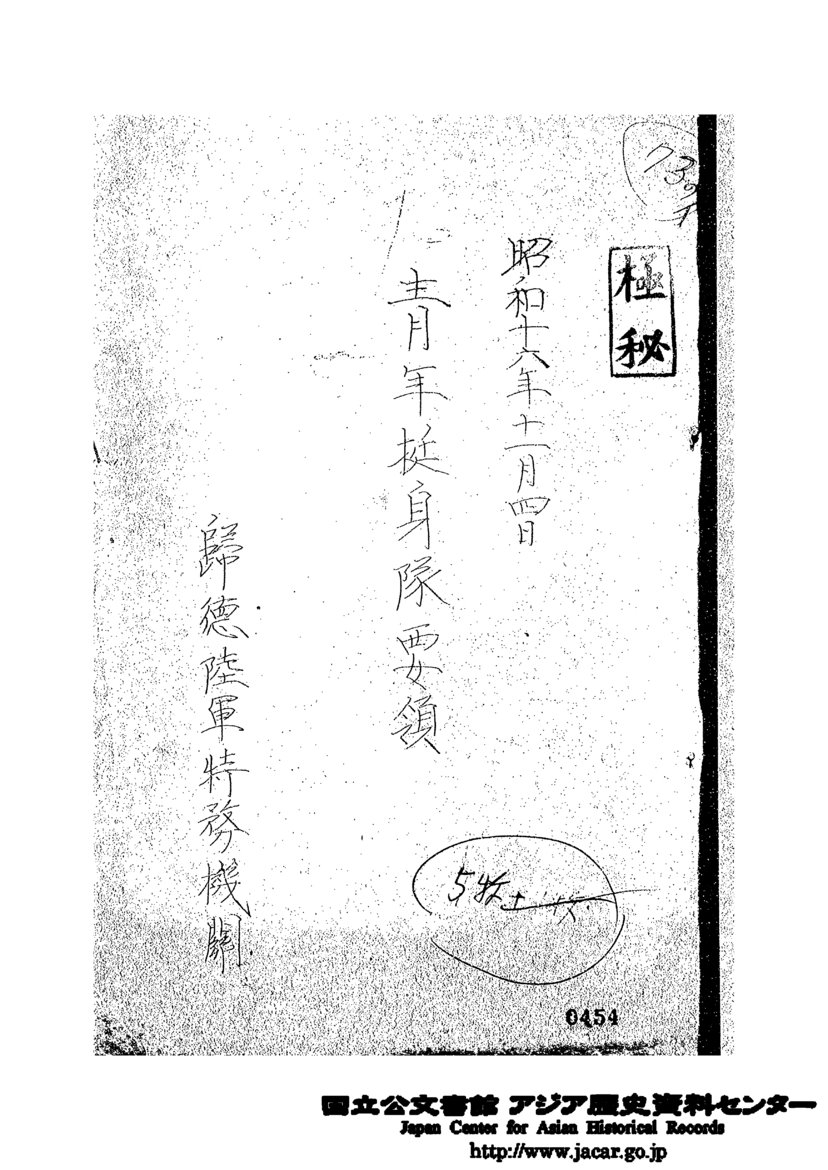 極秘
昭和十六年十一月四日
青年挺身隊要領
歸德陸軍特務機關
5枚
0454
国立公文書館 アジア歴史資料センター
Japan Center for Asian Historical Records
http://www.jacar.go.jp